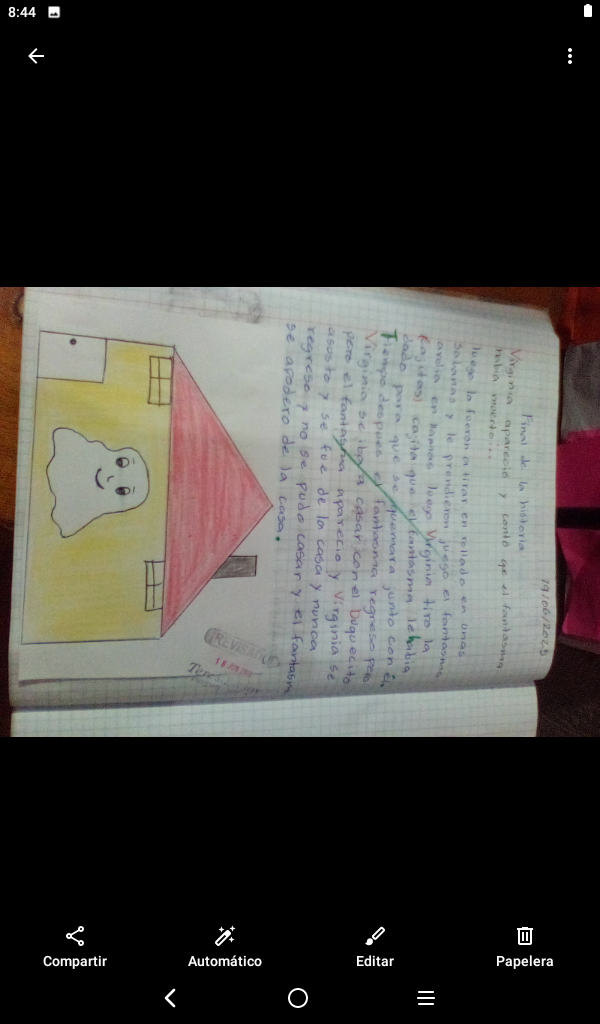 8:44
19/06/2023
Final de la historia
Virginia apareció y contó qe el fantasma
había muerto...
luego lo fueron a tirar en rollado en unas
sabanas y le prendieron fuego el fantasma
ardia en llamas luego Virginia tiro la
(cajitas) cajita que el fantasma le había
dado para que se quemara junto con él.
Tiempo despues el fantasma regreso
Virginia se iba a casar con el Duquecito
pero el fantasma aparecio y Virginia se
asusto y se fue de la casa y nunca
regreso y no se pudo casar y el fantasma
se apodero de la casa.
REVISADO
Compartir
Automático
Editar
Papelera